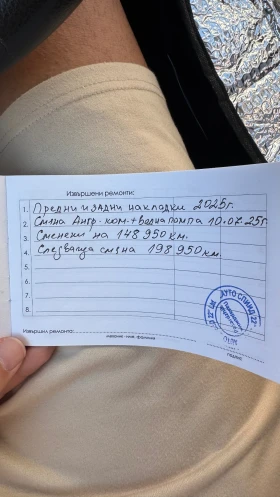 Извършени ремонти:
1. Предни и задни накладки 2025г.
2. Смяна Ангр. ком. + Водна помпа 10.07.25г.
3. Сменени на 148 950 км.
4. Следваща смяна 198 950 км.
5.
6.
7.
8.
Извършил ремонта:
подпис